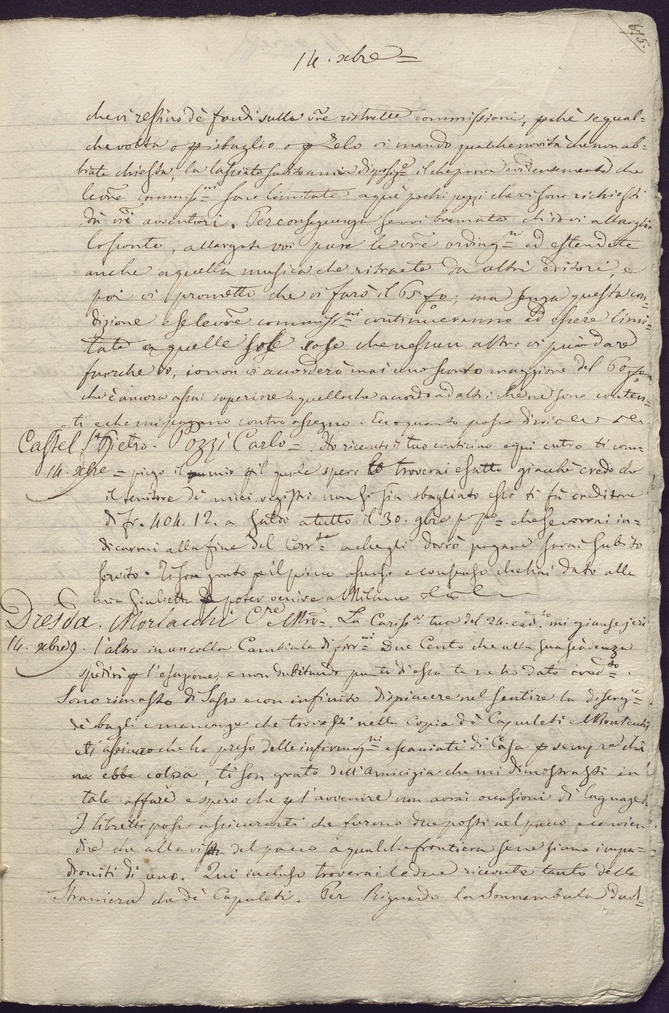 675.
14. xbre =
che vi restino de fondi sulle vre ristrette commissioni, perchè se qual=
che volta o p isbaglio o p zelo vi mando qualche novità che non ab=
biate chiesta, la lasciate a mia disposiz.e il che prova evidentemente che
le vre commiss.ni sono limitate a que pochi pezzi che vi sono richiesti
da vri avventori. Per conseguenza se voi bramate
lo sconto, allargate voi pure le vre ordinaz.ni ed estendete
anche a quella musica che ritraete da altri editori, e
poi vi prometto che vi farò il 65 p%, ma senza questa con=
dizione e se le vre commiss.ni continueranno ad essere limi=
tate a quelle sole cose che nessun altro vi può dare
fuorchè io, io non vi accorderò mai uno sconto maggiore del 60 p%
che è ancora assai superiore a quello che accordo ad altri che ne sono conten=
ti e che mi pagano contro assegno. Ecco quanto posso dirvi
Castel S. Pietro. Pozzi Carlo = Ho ricevuto il tuo conticino e qui entro ti com=
14. xbre = piego il mio p il quale spero lo troverai esatto giacchè credo che
il tenitore de miei registri non si sia sbagliato esso ti fa creditore
di fr. 404.12. a saldo a tutto il 30. 9bre p. po che se vorrai in=
dicarmi alla fine del corr.te a chi gli dovrò pagare sarai subito
servito. Ti son grato p il pieno assenso che hai dato alla
mia Giulietta poter venire a Milano
Dresda. Morlacchi C.re Mro. La Cariss.a tua del 24. cad.to mi giunse jeri
14. xbre. l'altro in un colla Cambiale di for.ni Due Cento che alla sua scadenza
spedirò p l'esazione, e non dubitando punto di essa te ne ho dato cred.to
Sono rimasto di sasso e con infinito dispiacere nel sentire la disgrazia
de sbagli e mancanze che trovasti nella Copia de Capuleti e Montecchi
ti assicuro che ho preso delle informaz.ni e scacciati di Casa p sempre chi
ne ebbe colpa, ti son grato dell'amicizia che mi dimostrasti in
tale affare e spero che p l'avvenire non avrai occasioni di lagnarti
I libretti posso assicurarti che furono due posti nel pacco e convien
dire che alla visita del pacco a qualche frontiera se ne siano impa=
droniti di uno. Qui incluso troverai le due ricevute tanto della
Straniera che de Capuleti. Per Riguardo la Sonnambula